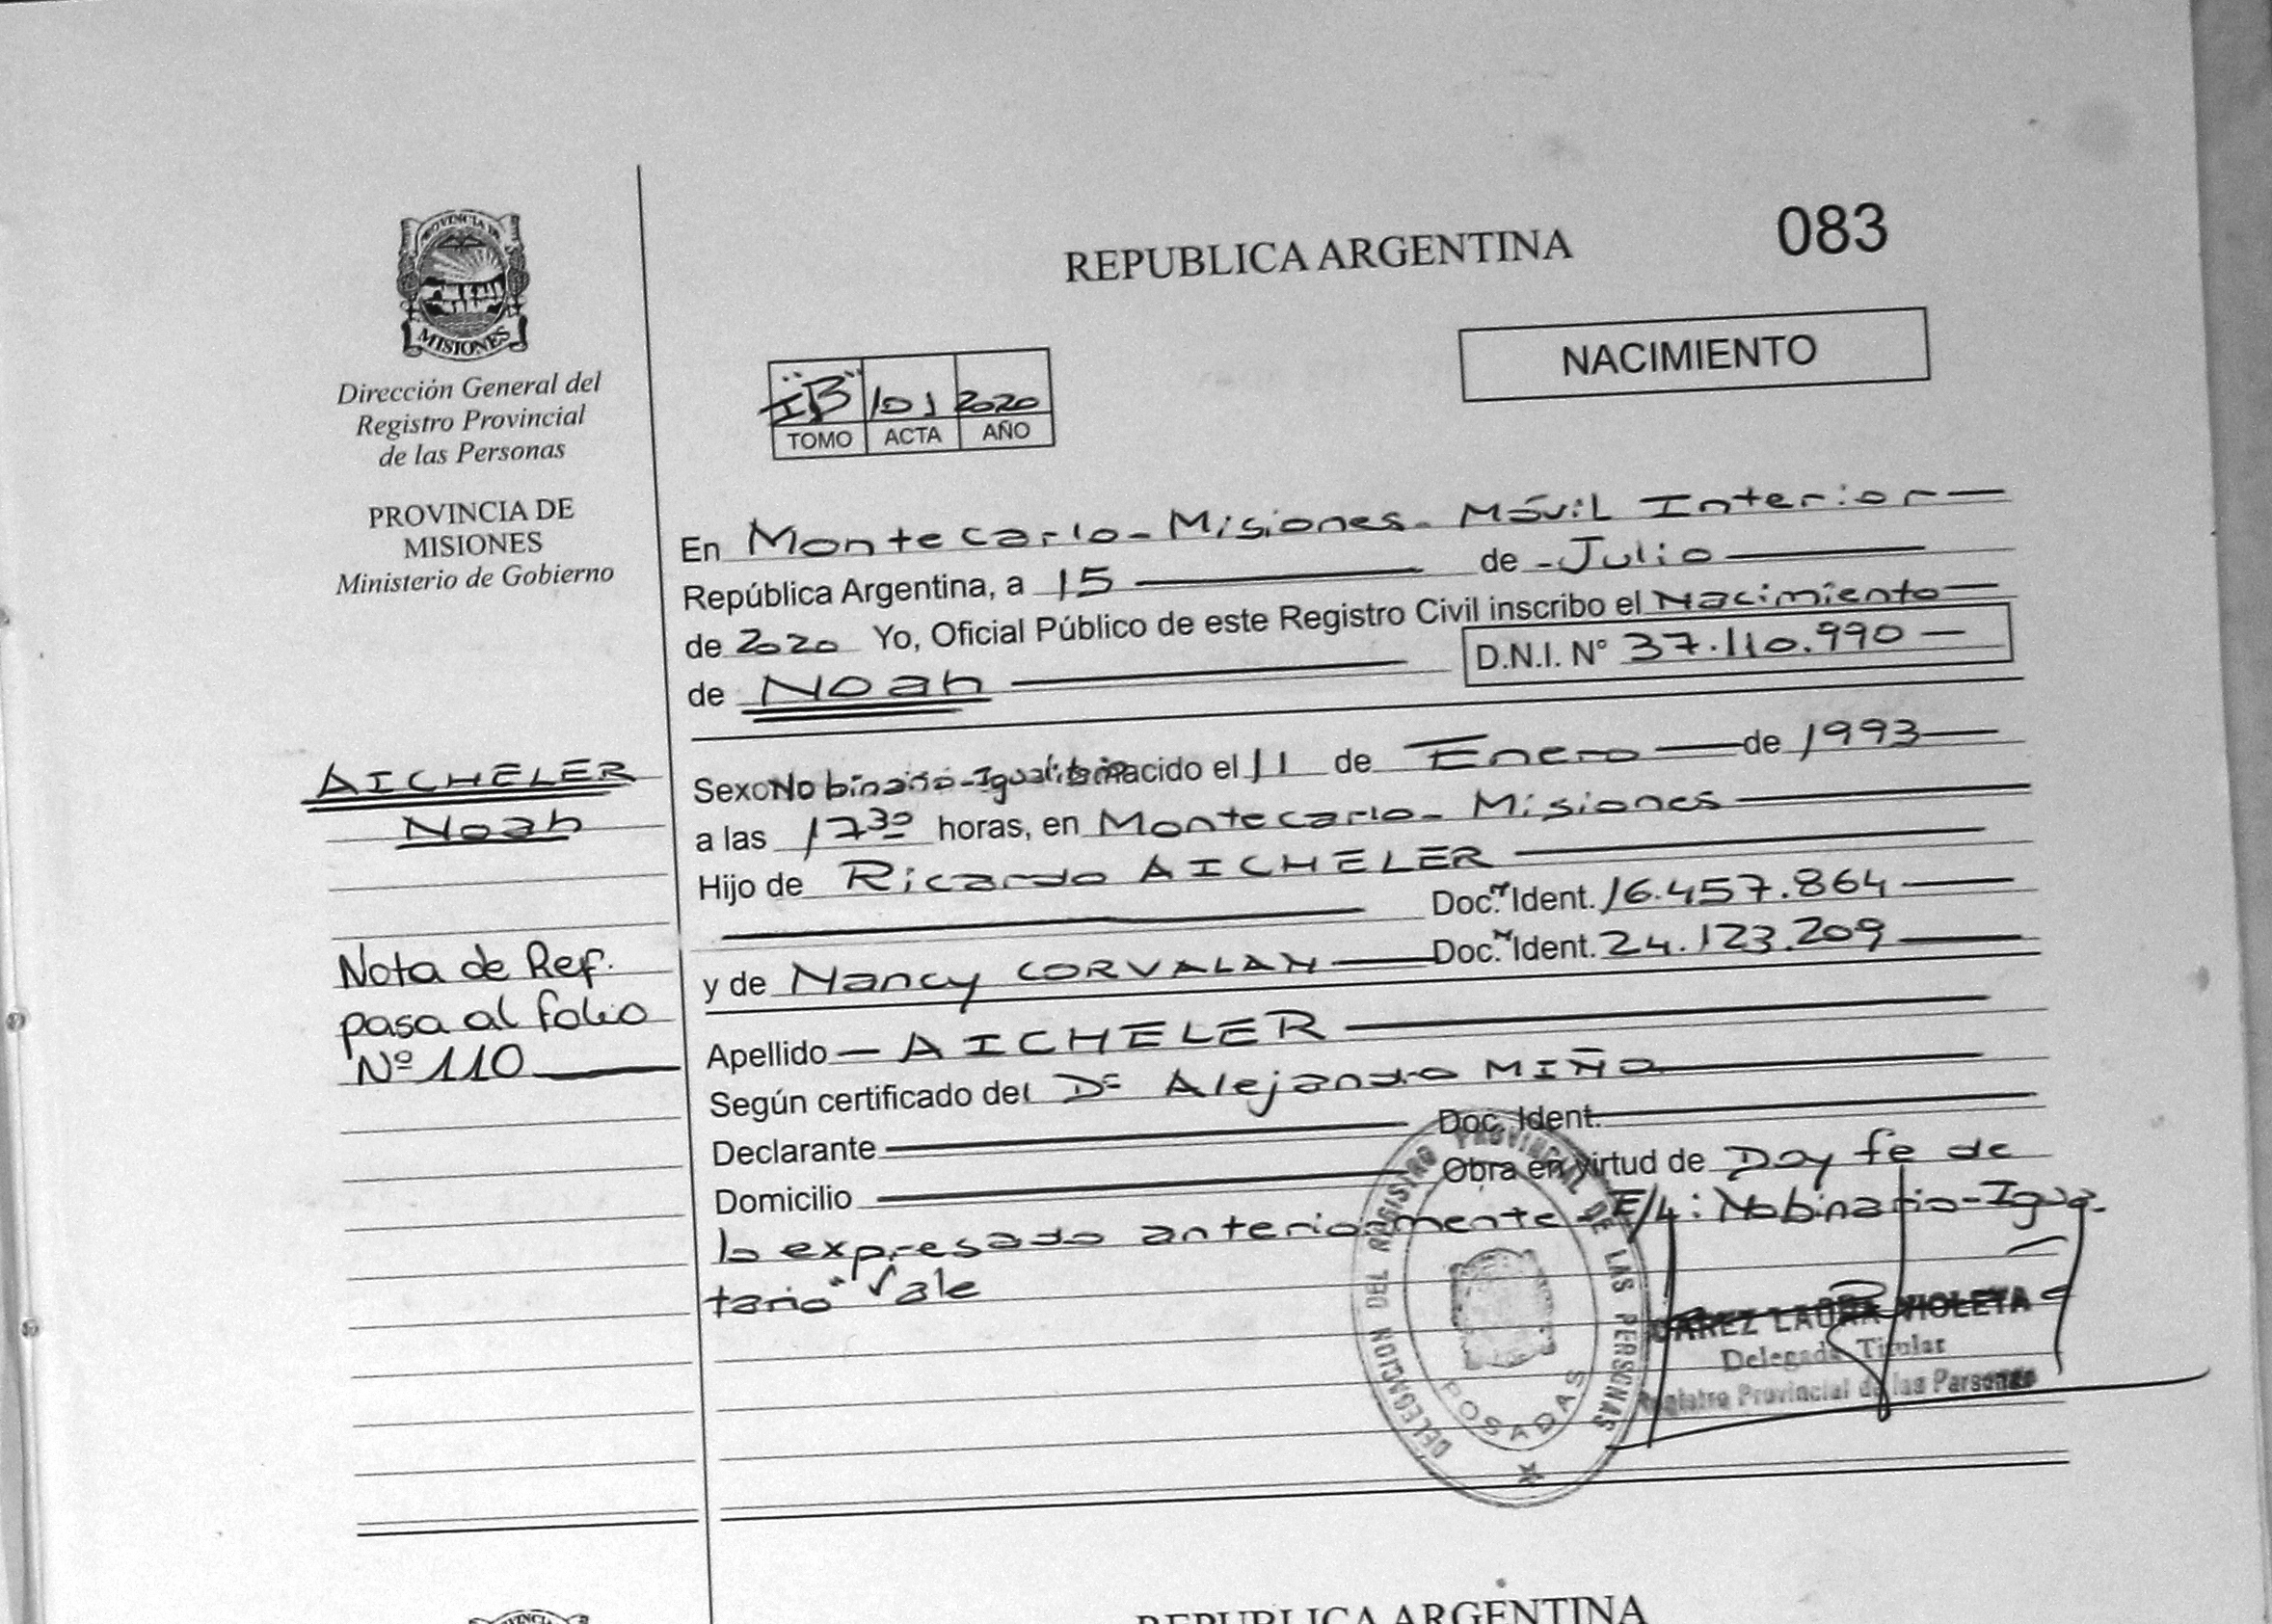 REPUBLICA ARGENTINA
083
NACIMIENTO
PROVINCIA DE
MISIONES
Dirección General del
Registro Provincial
de las Personas
PROVINCIA DE
MISIONES
Ministerio de Gobierno
"B" 101 2020
TOMO ACTA AÑO
En Montecarlo - Misiones - Móvil Interior
República Argentina, a 15 de Julio
de 2020 Yo, Oficial Público de este Registro Civil inscribo el Nacimiento
de Noah D.N.I. N° 37.110.990
AICHELER
Noah
Nota de Ref.
pasa al folio
Nº 110
Sexo No binario - Igualitario nacido el 11 de Enero de 1993
a las 17 30 horas, en Montecarlo - Misiones
Hijo de Ricardo AICHELER
Doc. Ident. 16.457.864
y de Nancy CORVALAN Doc. Ident. 24.123.209
Apellido AICHELER
Según certificado del Dr Alejandro MIÑO
Declarante Doc. Ident.
Domicilio Obra en virtud de Doy fe de
lo expresado anteriormente - E/L: No binario - Igua-
tario" Vale
DELEGACION DEL REGISTRO PROVINCIAL DE LAS PERSONAS
POSADAS
LAURA VIOLETA
Delegada Titular
Registro Provincial de las Personas
REPUBLICA ARGENTINA